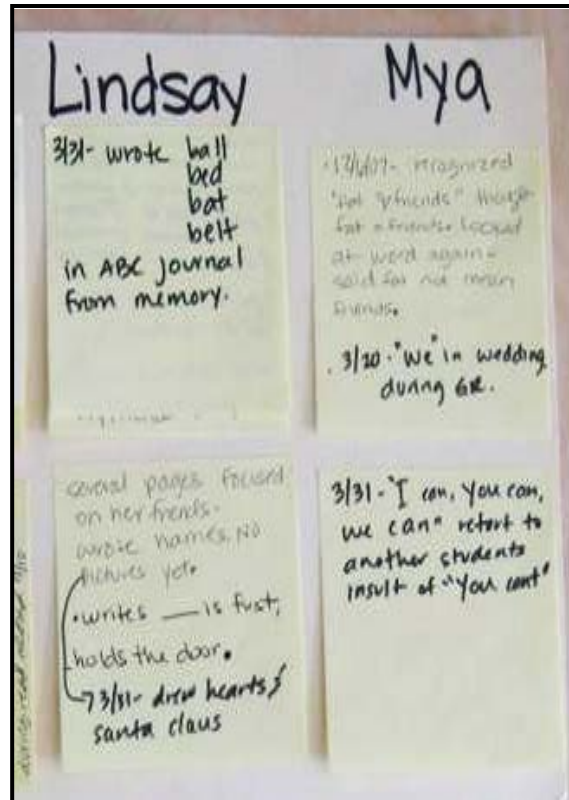 Lindsay
3/31- wrote ball
bed
bat
belt
in ABC journal
from memory.
several pages focused
on her friends.
wrote names. No
pictures yet.
• writes ___ is first,
holds the door.
3/31- drew hearts &
santa claus
Mya
recognized
friends" thought
friends. Looked
at word again-
said for not mean
friends.
3/20- "We" in wedding
during GR.
3/31- "I can, You can,
we can" retort to
another students
insult of "You cant"
during read